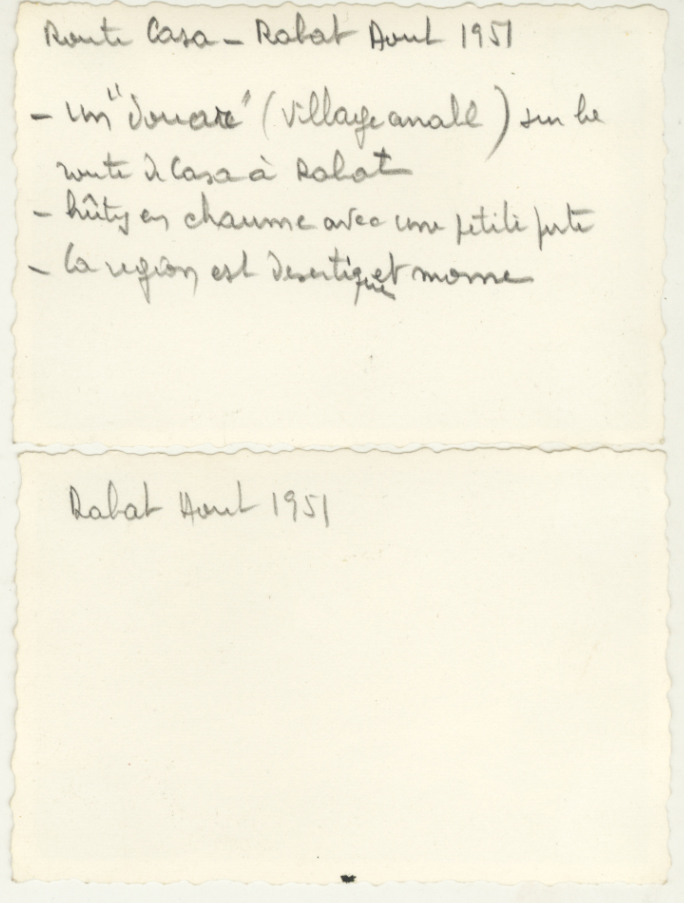 Route Casa - Rabat Aout 1951
- Un "douare" (village arabe) sur la
route de Casa à Rabat
- hûtes en chaume avec une petite porte
- la region est desertique et morne
Rabat Aout 1951